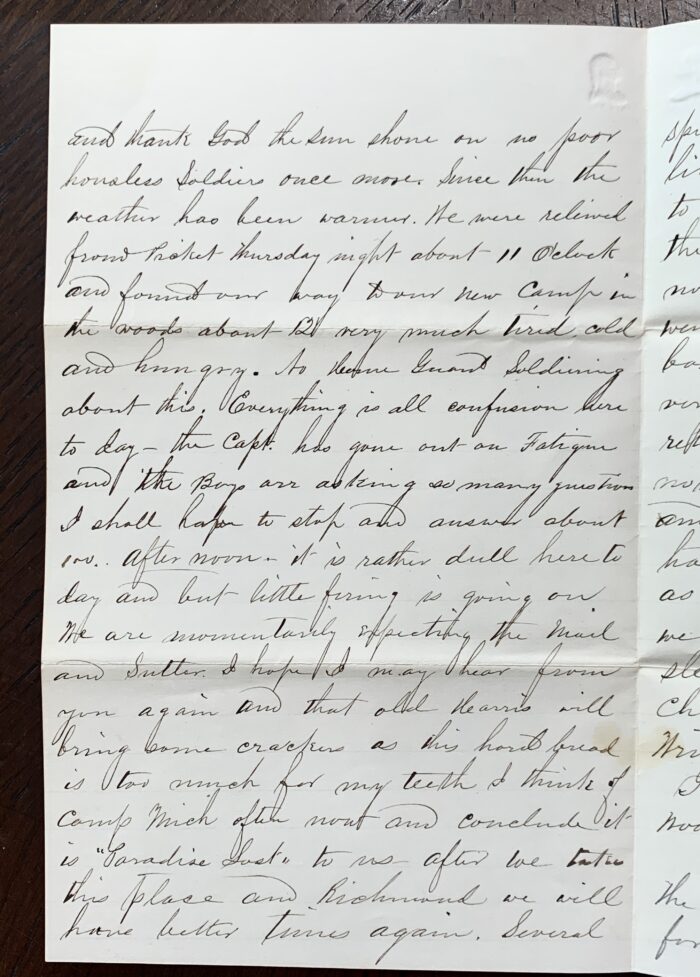 and thank God the sun shone on no poor
houseless Soldiers once more. Since then the
weather has been warmer. We were relieved
from Picket Thursday night about 11 Oclock
and found our way to our new Camp in
the woods about 12 very much tired, cold
and hungry. No Home Guard Soldiering
about this. Everything is all confusion here
to day - the Capt. has gone out on Fatigue
and the Boys are asking so many question
I shall have to stop and answer about
100.. After noon - it is rather dull here to
day and but little firing is going on
We are momentarily expecting the Mail
and Sutler. I hope I may hear from
you again and that old Harris will
bring some crackers as this hard bread
is too much for my teeth I think of
Camp Mich often now and conclude it
is "Paradise Lost" to us - after we take
this place and Richmond we will
have better times again. Several
to
the
we
as
we
the
for